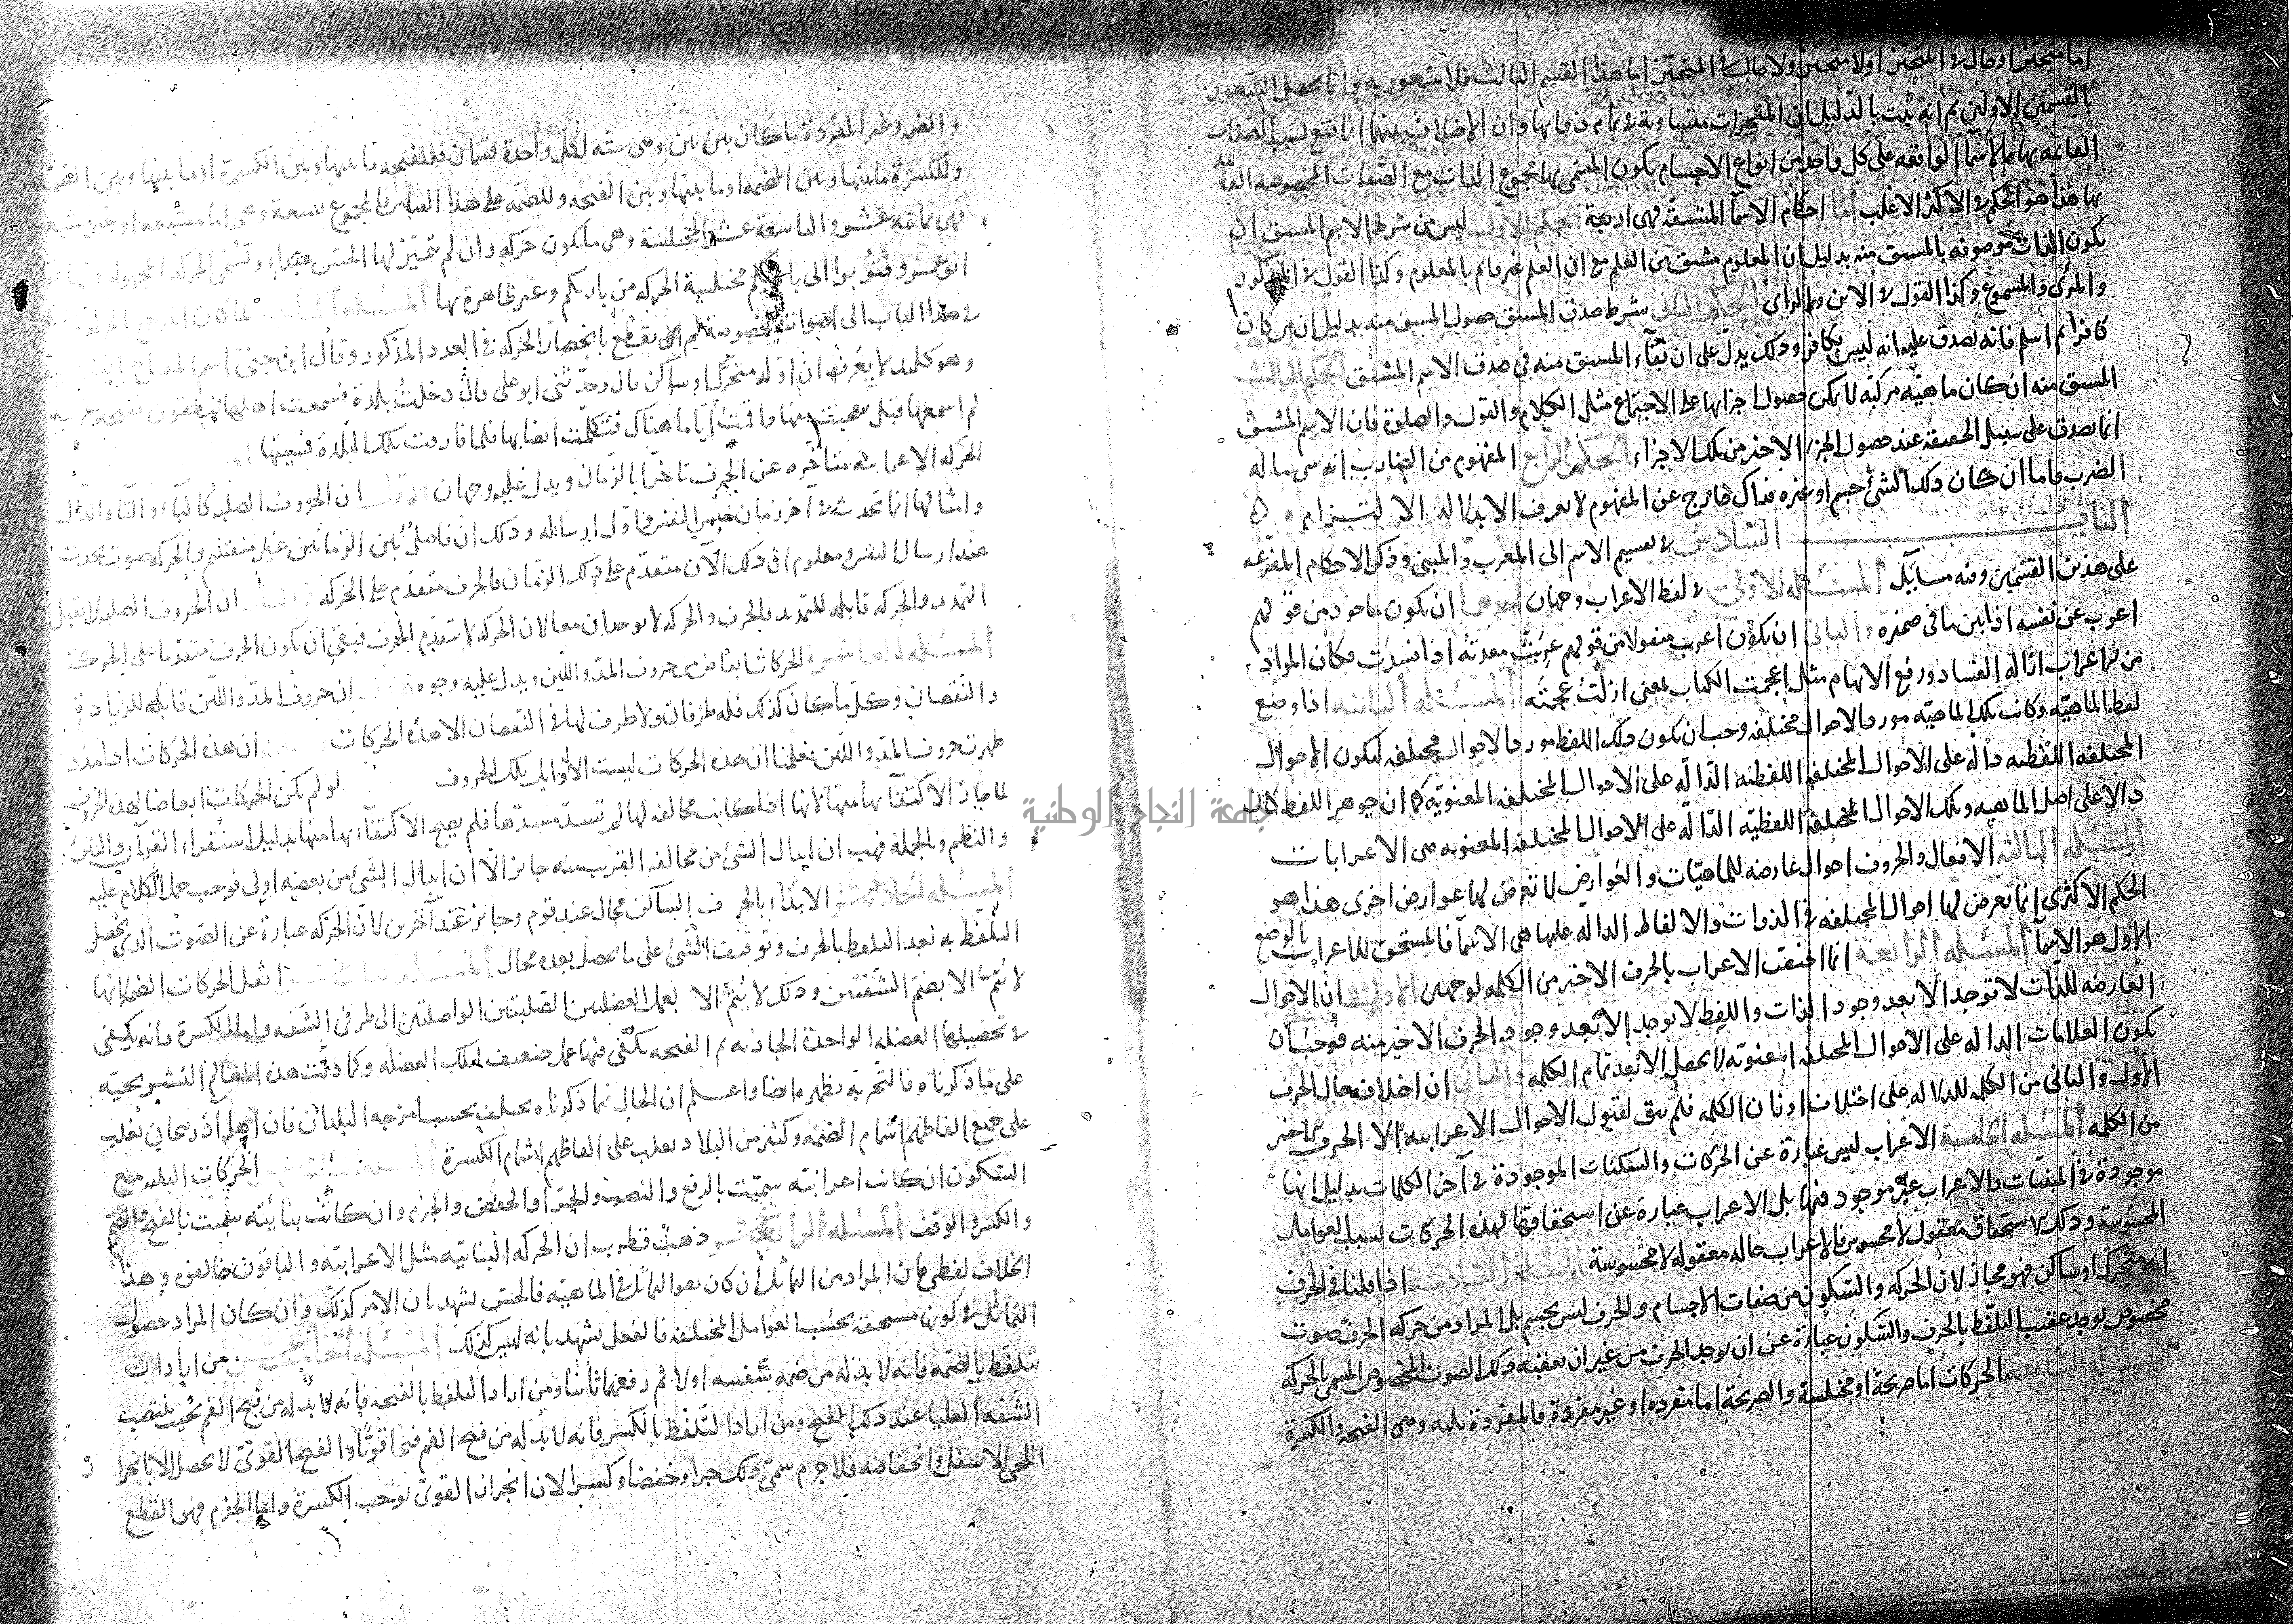 اما متحيز او حال فى المتحيز او لا متحيز ولا حال فى المتحيز اما هذا القسم الثالث فلا شعور به وانما يحصل الشعور
بالقسمين الاولين ثم انه ثبت بالدليل ان المتحيزات متساوية فى تمام ذواتها وان الاختلاف بينها انما يقع بسبب الصفات
القائمه بها فالاسماء الواقعه على كل واحد من انواع الاجسام يكون المسمى بها مجموع الذات مع الصفات المخصوصه القائمه
بها هذا هو الحكم فى الاكثر الاغلب اما احكام الاسماء المشتقه فهى اربعة الحكم الاول ليس من شرط الاسم المشتق ان
يكون الذات موصوفه بالمشتق منه بدليل ان المعلوم مشتق من العلم مع ان العلم غير قائم بالمعلوم وكذا القول فى المذكور
والمرئى والمسموع وكذا القول فى اللابن والرامى الحكم الثانى شرط صدق المشتق حصول المشتق منه بدليل ان من كان
كافرا ثم اسلم فانه يصدق عليه انه ليس بكافر وذلك يدل على ان بقاء المشتق منه فى صدق الاسم المشتق الحكم الثالث
المشتق منه ان كان ماهيه مركبه لا يمكن حصول اجزائها على الاجتماع مثل الكلام والقول والصلوة فان الاسم المشتق
انما يصدق على سبيل الحقيقه عند حصول الجزء الاخير من تلك الاجزاء الحكم الرابع المفهوم من الضارب انه شى ما له
الضرب فاما ان كان ذلك الشئ جسم او غيره فذاك خارج عن المفهوم لا يعرف الا بدلاله الالتزام
الباب السادس فى تقسيم الاسم الى المعرب والمبنى وذكر الاحكام المفرعه
على هذين القسمين وفيه مسائل المسئله الاولى فى لفظ الاعراب وجهان احدهما ان يكون ماخوذ من قولهم
اعرب عن نفسه اذا بين ما فى ضميره والثانى ان يكون اعرب منقولا من قولهم عربت معدته اذا فسدت فكان المراد
من الاعراب ازاله الفساد ورفع الابهام مثل اعجمت الكتاب بمعنى ازلت عجمته المسئله الثانيه اذا وضع
لفظ للماهيه وكانت تلك الماهيه موردا لاحوال مختلفه وجب ان يكون ذلك اللفظ موردا لاحوال مختلفه لتكون الاحوال
المختلفه اللفظيه داله على الاحوال المختلفه المعنويه كما ان جوهر اللفظ كان
دالا على اصل الماهيه وتلك الاحوال المختلفه اللفظيه الداله على الاحوال المختلفه المعنويه هى الاعرابات
المسئله الثالثه الافعال والحروف احوال عارضه للماهيات والعوارض لا تعرض لها عوارض اخرى هذا هو
الحكم الاكثرى انما يعرض لها احوال المختلفه فى الذوات والالفاظ الداله عليها هى الاسماء فالمستحق للاعراب بالوضع
الاول هو الاسماء المسئله الرابعة انما اختص الاعراب بالحرف الاخير من الكلمه لوجهين الاول ان الاحوال
العارضه للذات لا توجد الا بعد وجود الذات واللفظ لا يوجد الا بعد وجود الحرف الاخير منه فوجب ان
يكون العلامات الداله على الاحوال المختلفه المعنويه لا يحصل الا بعد تمام الكلمه والثانى ان اختلاف حال الحرف
الاول والثانى من الكلمه للدلاله على اختلاف اوزان الكلمه فلم يبق لقبول الاحوال الاعرابيه الا الحرف الاخير
من الكلمه المسئله الخامسه الاعراب ليس عبارة عن الحركات والسكنات الموجودة فى آخر الكلمات بدليل انها
موجودة فى المبنيات والاعراب غير موجود فيها بل الاعراب عبارة عن استحقاقها لهذه الحركات بسبب العوامل
المحسوسة وذلك الاستحقاق معقول لا محسوس فالاعراب حاله معقوله لا محسوسة المسئله السادسة اذا قلنا فى الحرف
انه متحرك او ساكن فهو مجاز لان الحركه والسكون من صفات الاجسام والحرف ليس بجسم بل المراد من حركه الحرف صوت
مخصوص يوجد عقيب التلفظ بالحرف والسكون عبارة عن ان يوجد الحرف من غير ان يعقبه ذلك الصوت المخصوص المسمى بالحركه
الحركات اما صريحة او مختلسة والصريحة اما مفرده او غير مفردة فالمفردة ثلاثه وهى الفتحه والكسرة
والضمه وغير المفردة ما كان بين بين وهى سته لكل واحدة قسمان فللفتحه ما بينها وبين الكسرة او ما بينها وبين الضمة
وللكسرة ما بينها وبين الضمه او ما بينها وبين الفتحه وللضمه على هذا القياس فالمجموع تسعة وهى اما مشبعه او غير مشبعه
فهى ثمانيه عشر والتاسعة عشر المختلسة وهى ما تكون حركه وان لم يتميز لها الحس مبدا وتسمى الحركه المجهوله
ابو عمرو فتوبوا الى بارئكم مختلسة الحركه من بارئكم وغير ظاهرة بها المسئله الثامنه لما كان المرجع
فى هذا الباب الى اصوات مخصوصة لم يقطع بانحصار الحركه فى العدد المذكور وقال ابن جنى اسم المفتاح
وهو كليد لا يعرف ان اوله متحرك او ساكن قال وحدثنى ابو على قال دخلت بلدة فسمعت اهلها ينطقون بفتحه غريبة
لم اسمعها قبل فعجبت منها واقمت اياما هناك فتكلمت ايضا بها فلما فارقت تلك البلدة نسيتها
الحركه الاعرابيه متاخره عن الحرف تاخرا بالزمان ويدل عليه وجهان الاول ان الحروف الصلبه كالباء والتاء والدال
وامثالها انما تحدث فى آخر زمان حبس النفس واول ارساله وذلك ان فاصل بين الزمانين غير منقسم والحركه صوت يحدث
عند ارسال النفس ومعلوم ان ذلك الآن متقدم على ذلك الزمان فالحرف متقدم على الحركه ان الحروف الصلبه لا تقبل
التمديد والحركه قابله للتمديد فالحرف والحركه لا يوجدان معا لان الحركه لا تتقدم الحرف فبقى ان يكون الحرف متقدما على الحركة
المسئله العاشره الحركات ابعاض من حروف المد واللين ويدل عليه وجوه ان حروف المد واللين قابله للزيادة
والنقصان وكل ما كان كذلك فله طرفان ولا طرف لها فى النقصان الا هذه الحركات ان هذه الحركات اذا مدد
ظهرت حروف المد واللين فعلمنا ان هذه الحركات ليست الا اوايل تلك الحروف لو لم تكن الحركات ابعاضا لهذه الحروف
لما جاز الاكتفاء بها منها لانها اذا كانت مخالفه لها لم تسد مسدها فلم يصح الاكتفاء بها منها بدليل استقراء القرآن والنثر
والنظم وبالجملة فهب ان ابدال الشئ من مخالفه القريب منه جايز الا ان ابدال الشئ من بعضه اولى فوجب حمل الكلام عليه
المسئله الحاديه عشر الابتداء بالحرف الساكن محال عند قوم وجايز عند آخرين لان الحركه عبارة عن الصوت الذى يحصل
التلفظ به بعد التلفظ بالحرف وتوقيف الشئ على ما يحصل بعده محال اثقل الحركات الضمه لانها
لا يتم الا بضم الشفتين وذلك لا يتم الا بعمل العضلتين الصلبتين الواصلتين الى طرفى الشفه واما الكسرة فانه يكفى
فى تحصيلها العضله الواحدة الجاذبه ثم الفتحه يكفى فيها عمل ضعيف لتلك العضله وكما دلت هذه المعالم التشريحيه
على ما ذكرناه فالتجربة تظهره ايضا واعلم ان الحال فيما ذكرناه يختلف بحسب امزجه البلدان فان اهل اذربيجان يغلب
على جميع الفاظهم اشمام الضمه وكثير من البلاد يغلب على الفاظهم اشمام الكسرة الحركات الثلثه مع
السكون ان كانت اعرابيه سميت بالرفع والنصب والجر او الخفض والجزم وان كانت بنائيه سميت بالفتح والضم
والكسر والوقف المسئله الرابعه عشر ذهب قطرب ان الحركه البنائيه مثل الاعرابيه والباقون خالفوه وهذا
الخلاف لفظى فان المراد من التماثل ان كان هو التماثل فى الماهيه فالحس يشهد بان الامر كذلك وان كان المراد حصول
التماثل فى كونها مستحقه بحسب العوامل المختلفه فالفعل يشهد بانه ليس كذلك المسئله الخامسه عشر من اراد ان
يتلفظ بالضمه فانه لا بد له من ضمه شفتيه اولا ثم رفعهما ثانيا ومن اراد التلفظ بالفتحه فانه لا بد له من فتح الفم بحيث تنتصب
الشفه العليا عند ذلك الفتح ومن اراد التلفظ بالكسر فانه لا بد له من فتح الفم فتحا قويا والفتح القوى لا يحصل الا بانجرار
اللحى الاسفل وانخفاضه فلا جرم سمى ذلك جرا وخفضا وكسرا لان انجرار القوى يوجب الكسرة واما الجزم فهو القطع
جامعة النجاح الوطنية